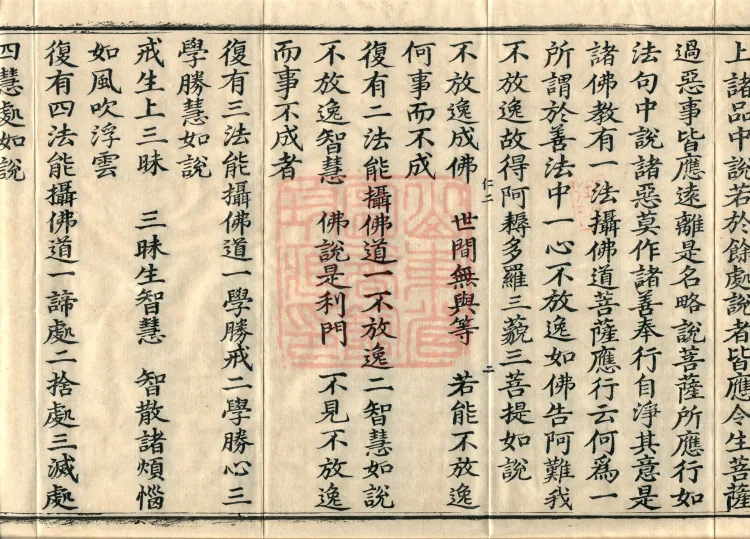 上諸品中說若於餘處說者皆應令生菩薩
過惡事皆應遠離是名略說菩薩所應行如
法句中說諸惡莫作諸善奉行自淨其意是
諸佛教有一法攝佛道菩薩應行云何為一
所謂於善法中一心不放逸如佛告阿難我
不放逸故得阿耨多羅三藐三菩提如說
不放逸成佛 世間無與等 若能不放逸
何事而不成
復有二法能攝佛道一不放逸二智慧如說
不放逸智慧 佛說是利門 不見不放逸
而事不成者
復有三法能攝佛道一學勝戒二學勝心三
學勝慧如說
戒生上三昧 三昧生智慧 智散諸煩惱
如風吹浮雲
復有四法能攝佛道一諦處二捨處三滅處
四慧處如說
仁二
二